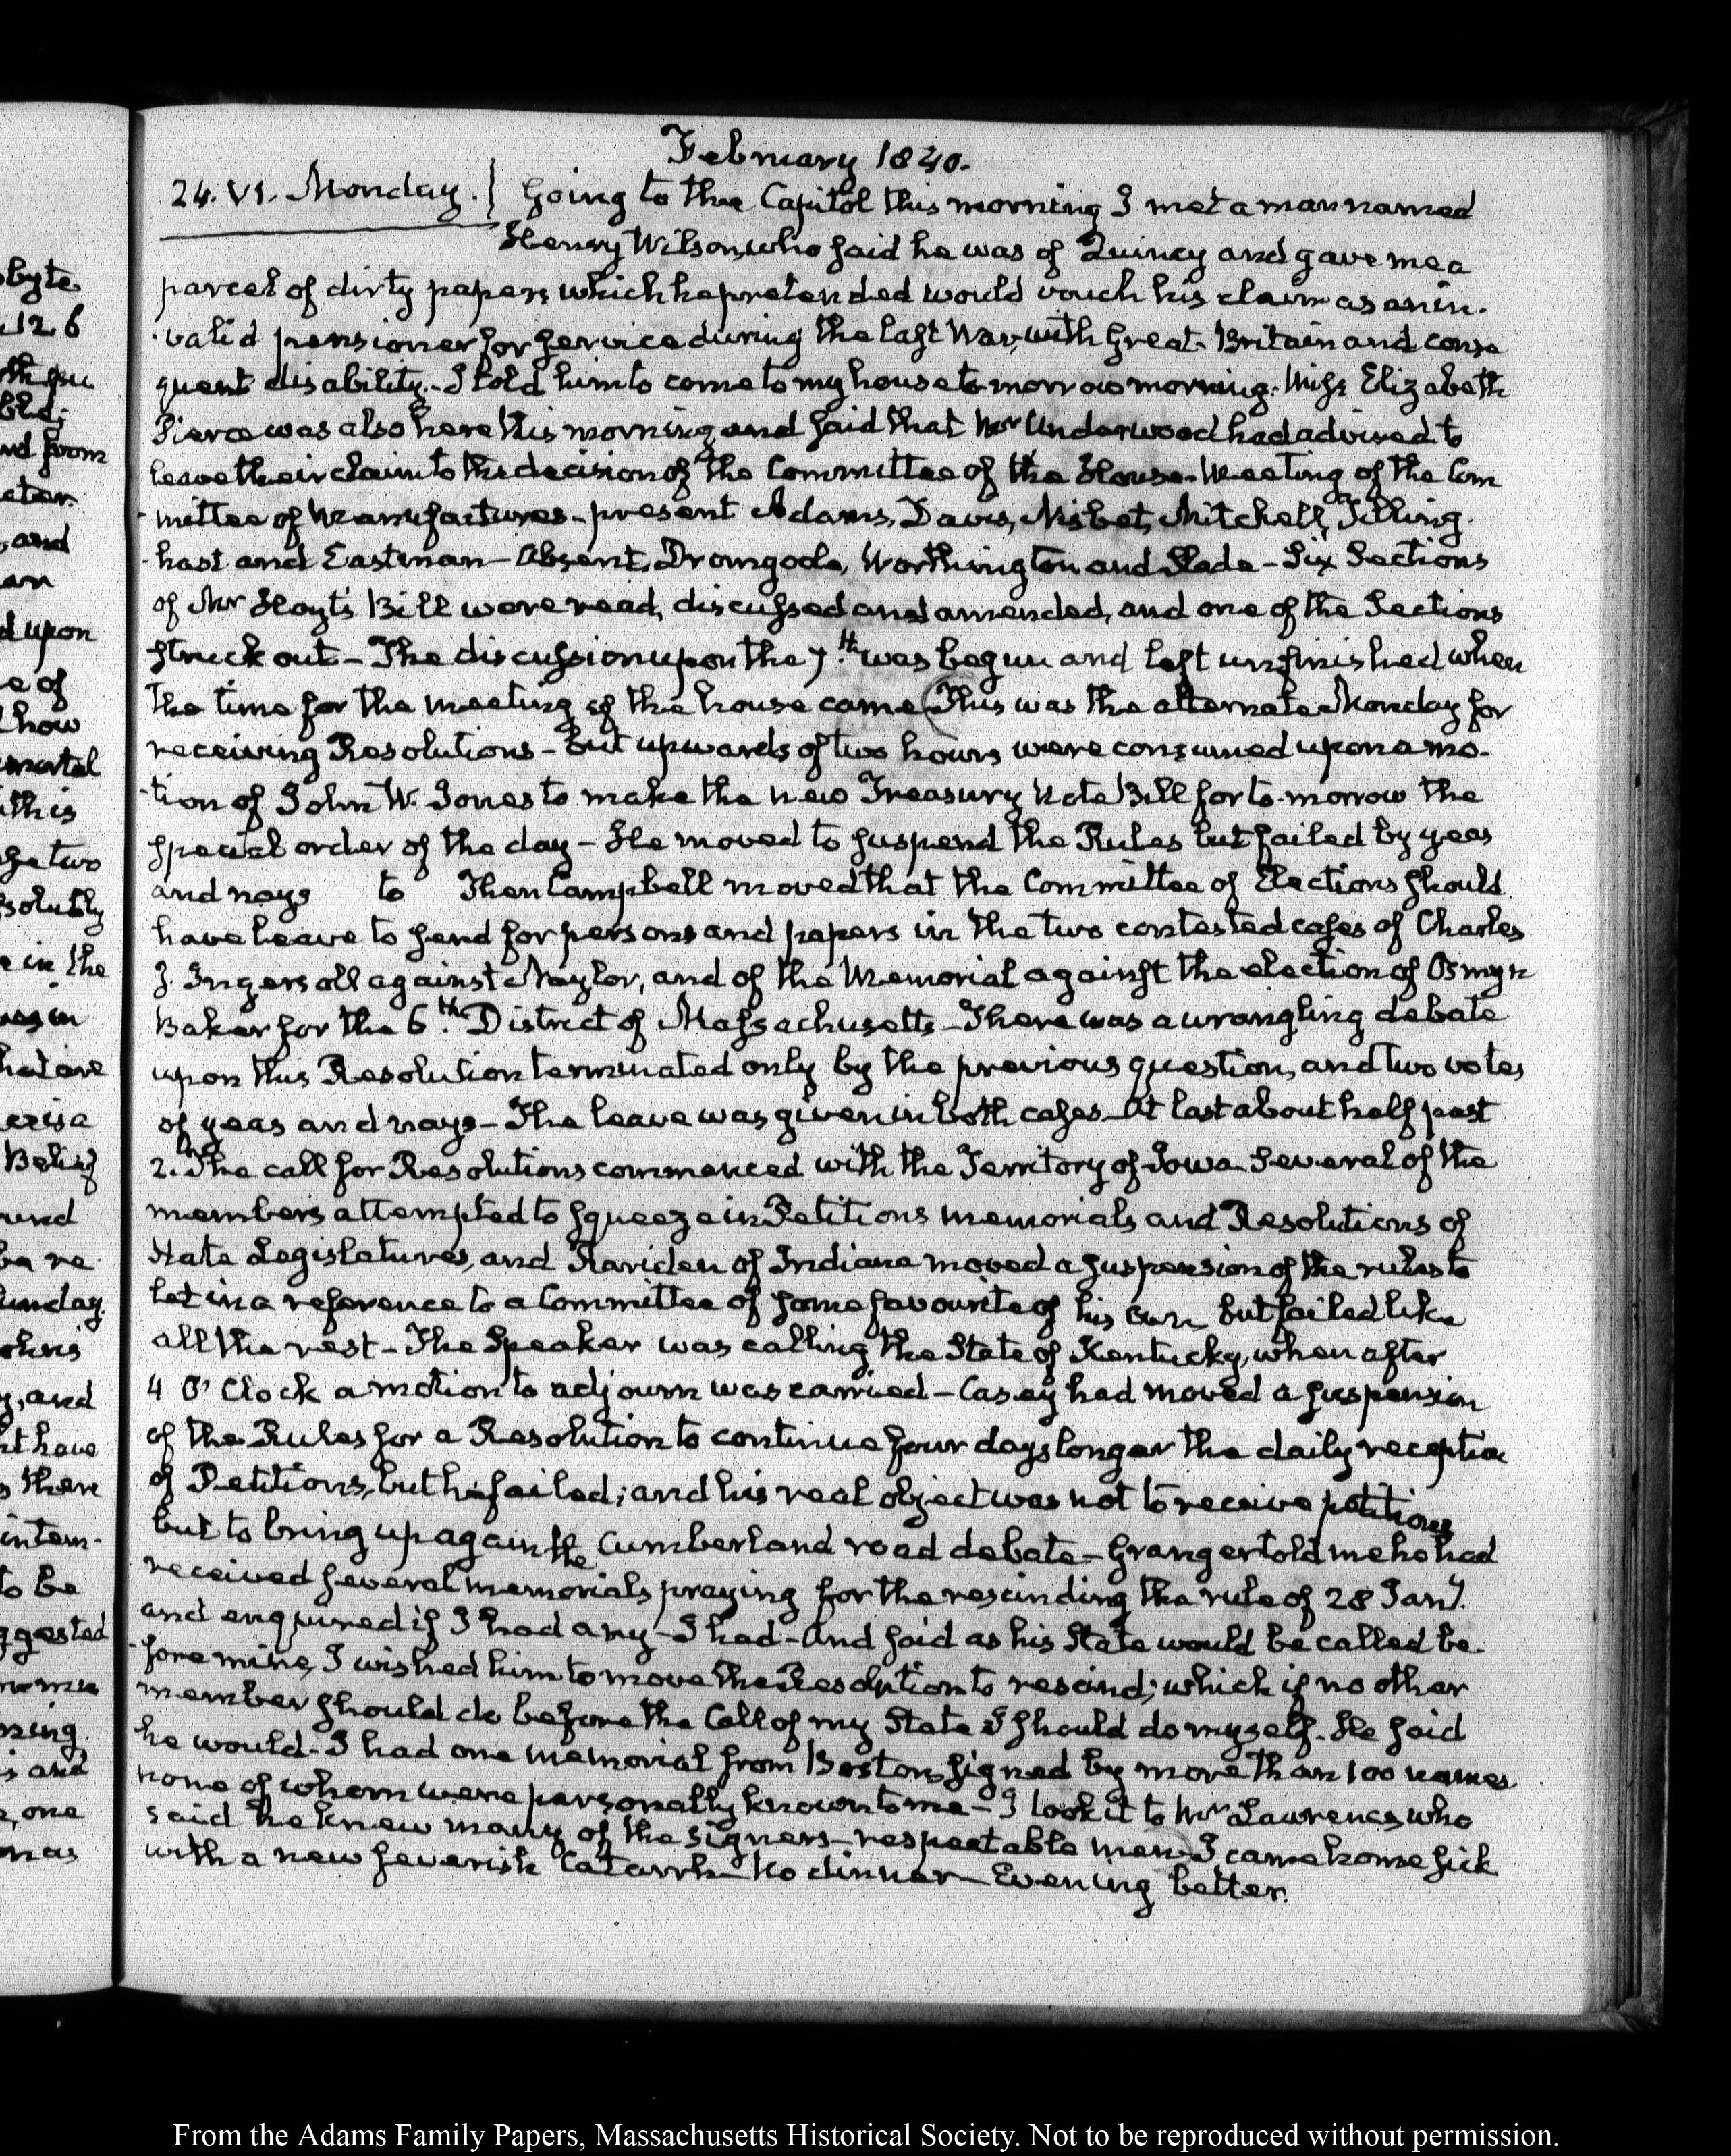 February 1840.
24. VI. Monday. } Going to the Capitol this morning I met a man named
Henry Wilson, who said he was of Quincy and gave me a
parcel of dirty papers which he pretended would vouch his claim as an in-
-valid pensioner for service during the last War, with Great-Britain and conse
quent disability.- I told him to come to my house to-morrow morning. Miss Elizabeth
Pierce was also here this morning and said that Mr Underwood had advised to
leave their claim to the decision of the Committee of the House- Meeting of the Com
-mittee of Manufactures- present Adams, Davis, Nisbet, Mitchell, Tilling-
-hast and Eastman- Absent, Dromgoole, Worthington and Slade- Six Sections
of Mr Hoyt's Bill were read, discussed and amended, and one of the Sections
struck out- The discussion upon the 7.th was begun and left unfinished when
the time for the meeting of the house came (This was the alternate Monday for
receiving Resolutions- But upwards of two hours were consumed upon a mo-
-tion of John W. Jones to make the new Treasury Note Bill for to-morrow the
special order of the day- He moved to suspend the Rules but failed by yeas
and nays to Then Campbell moved that the Committee of Elections should
have leave to send for persons and papers in the two contested cases of Charles
J. Ingersoll against Naylor, and of the Memorial against the election of Osmyn
Baker for the 6.th District of Massachusetts- There was a wrangling debate
upon this Resolution terminated only by the previous question, and two votes
of yeas and nays- The leave was given in both cases- At last about half past
2. The call for Resolutions commenced with the Territory of Iowa. Several of the
members attempted to squeeze in Petitions memorials and Resolutions of
State Legislatures, and Rariden of Indiana moved a suspension of the rules to
let in a reference to a Committee of some favourite of his own but failed like
all the rest- The Speaker was calling the State of Kentucky, when after
4 O'Clock a motion to adjourn was carried- Casey had moved a suspension
of the Rules for a Resolution to continue four days longer the daily reception
of Petitions, but he failed; and his real object was not to receive petitions
but to bring up again the Cumberland road debate- Granger told me he had
received several memorials praying for the rescinding the rule of 28 Jany.
and enquired if I had any- I had- And said as his State would be called be-
-fore mine, I wished him to move the Resolution to rescind; which if no other
member should do before the Call of my State I should do myself. He said
he would- I had one memorial from Boston, signed by more than 100 names
none of whom were personally known to me- I took it to Mr Lawrence, who
said he knew many of the signers- respectable men) I came home sick
with a new feverish Catarrh- No dinner- Evening better.
From the Adams Family Papers, Massachusetts Historical Society. Not to be reproduced without permission.